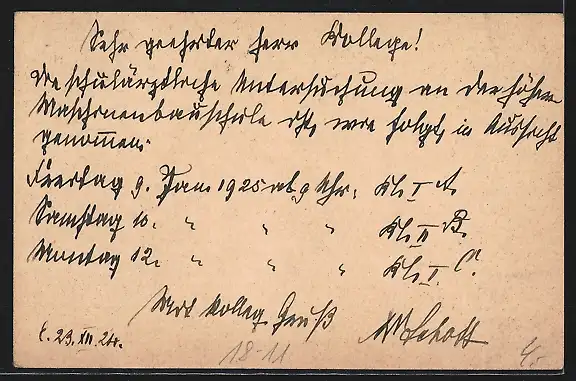 Sehr geehrter Herr Kollege!
Die schulärztliche Untersuchung an der höher.
Maschinenbauschule ist, wie folgt, in Aussicht
genommen.
Freitag 9. Jan. 1925 ab 9 Uhr, Kl. I A.
Samstag 10. " " " Kl. II B.
Montag 12. " " " Kl. I C.
Mit kolleg. Gruß
C. 29. XII. 24.
18-11